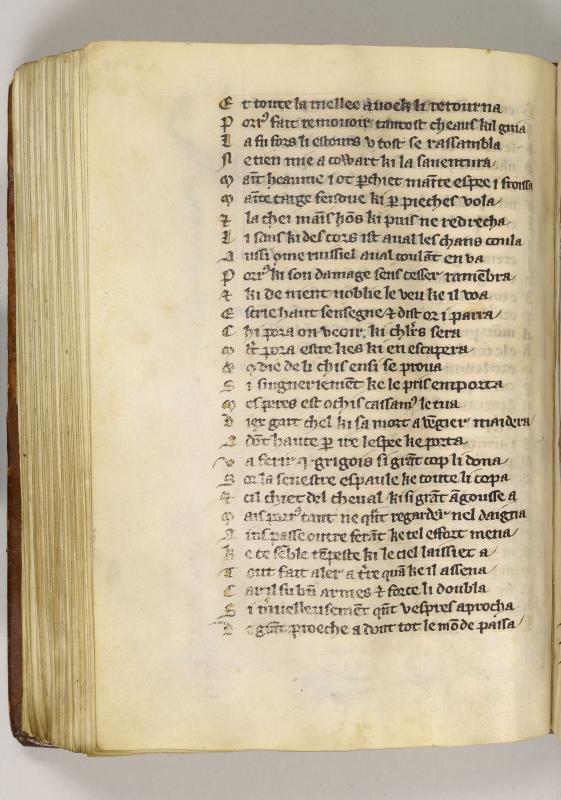 E t toute la mellee auoek li retourna
P orꝰ fait remouoir tantost cheaus kil guia
L a fu fors li estours v tost se rassambla
N e tien mie a cowart ki la sauentura
M aīt heaume i ot ꝑchiet maīte espee i froissa
M aīte targe fendue ki ꝑ pieches vola
⁊ la chei maīs hōs ki puis ne redrecha
L i sans ki des cors ist aual les chans coula
A ussi ꝯme ruissiel aual coulāt en va
P orꝰ ki son damage sens cesser ramēbra
⁊ ki de ment noblie le veu ke il voa
E scrie haut sensegne ⁊ dist or i parra
C hi pora on veoir ki chlꝛs sera
M lt̄ pora estre lies ki en escapera
A de li chis ensi se proua
S i singueriemēt ke le pris emporta
M es peres est ochis cassamꝰ le tua
D iex gart chel ki sa mort a vēgier maidera
A dōt hauce ꝑ ire lespee ke porta
V a ferir .j. grigois si grāt cop li dona
S or la senestre espaule ke toute li copa
⁊ cil chiet del cheual ki si grāt āgousse a
M ais porꝰ tant ne qͥt regarder nel daigna
A ins passe outre ferāt ke tel effort mena
K e ce sēble tēpeste ki le ciel laissiet a
T out fait aler a tr̄re quā ke il assena
C ar il fu bn̄ armes ⁊ force li doubla
S i mͥuelleusemēt qn̄t vespres aprocha
D e grāt proeche a dont tot le mōde passa